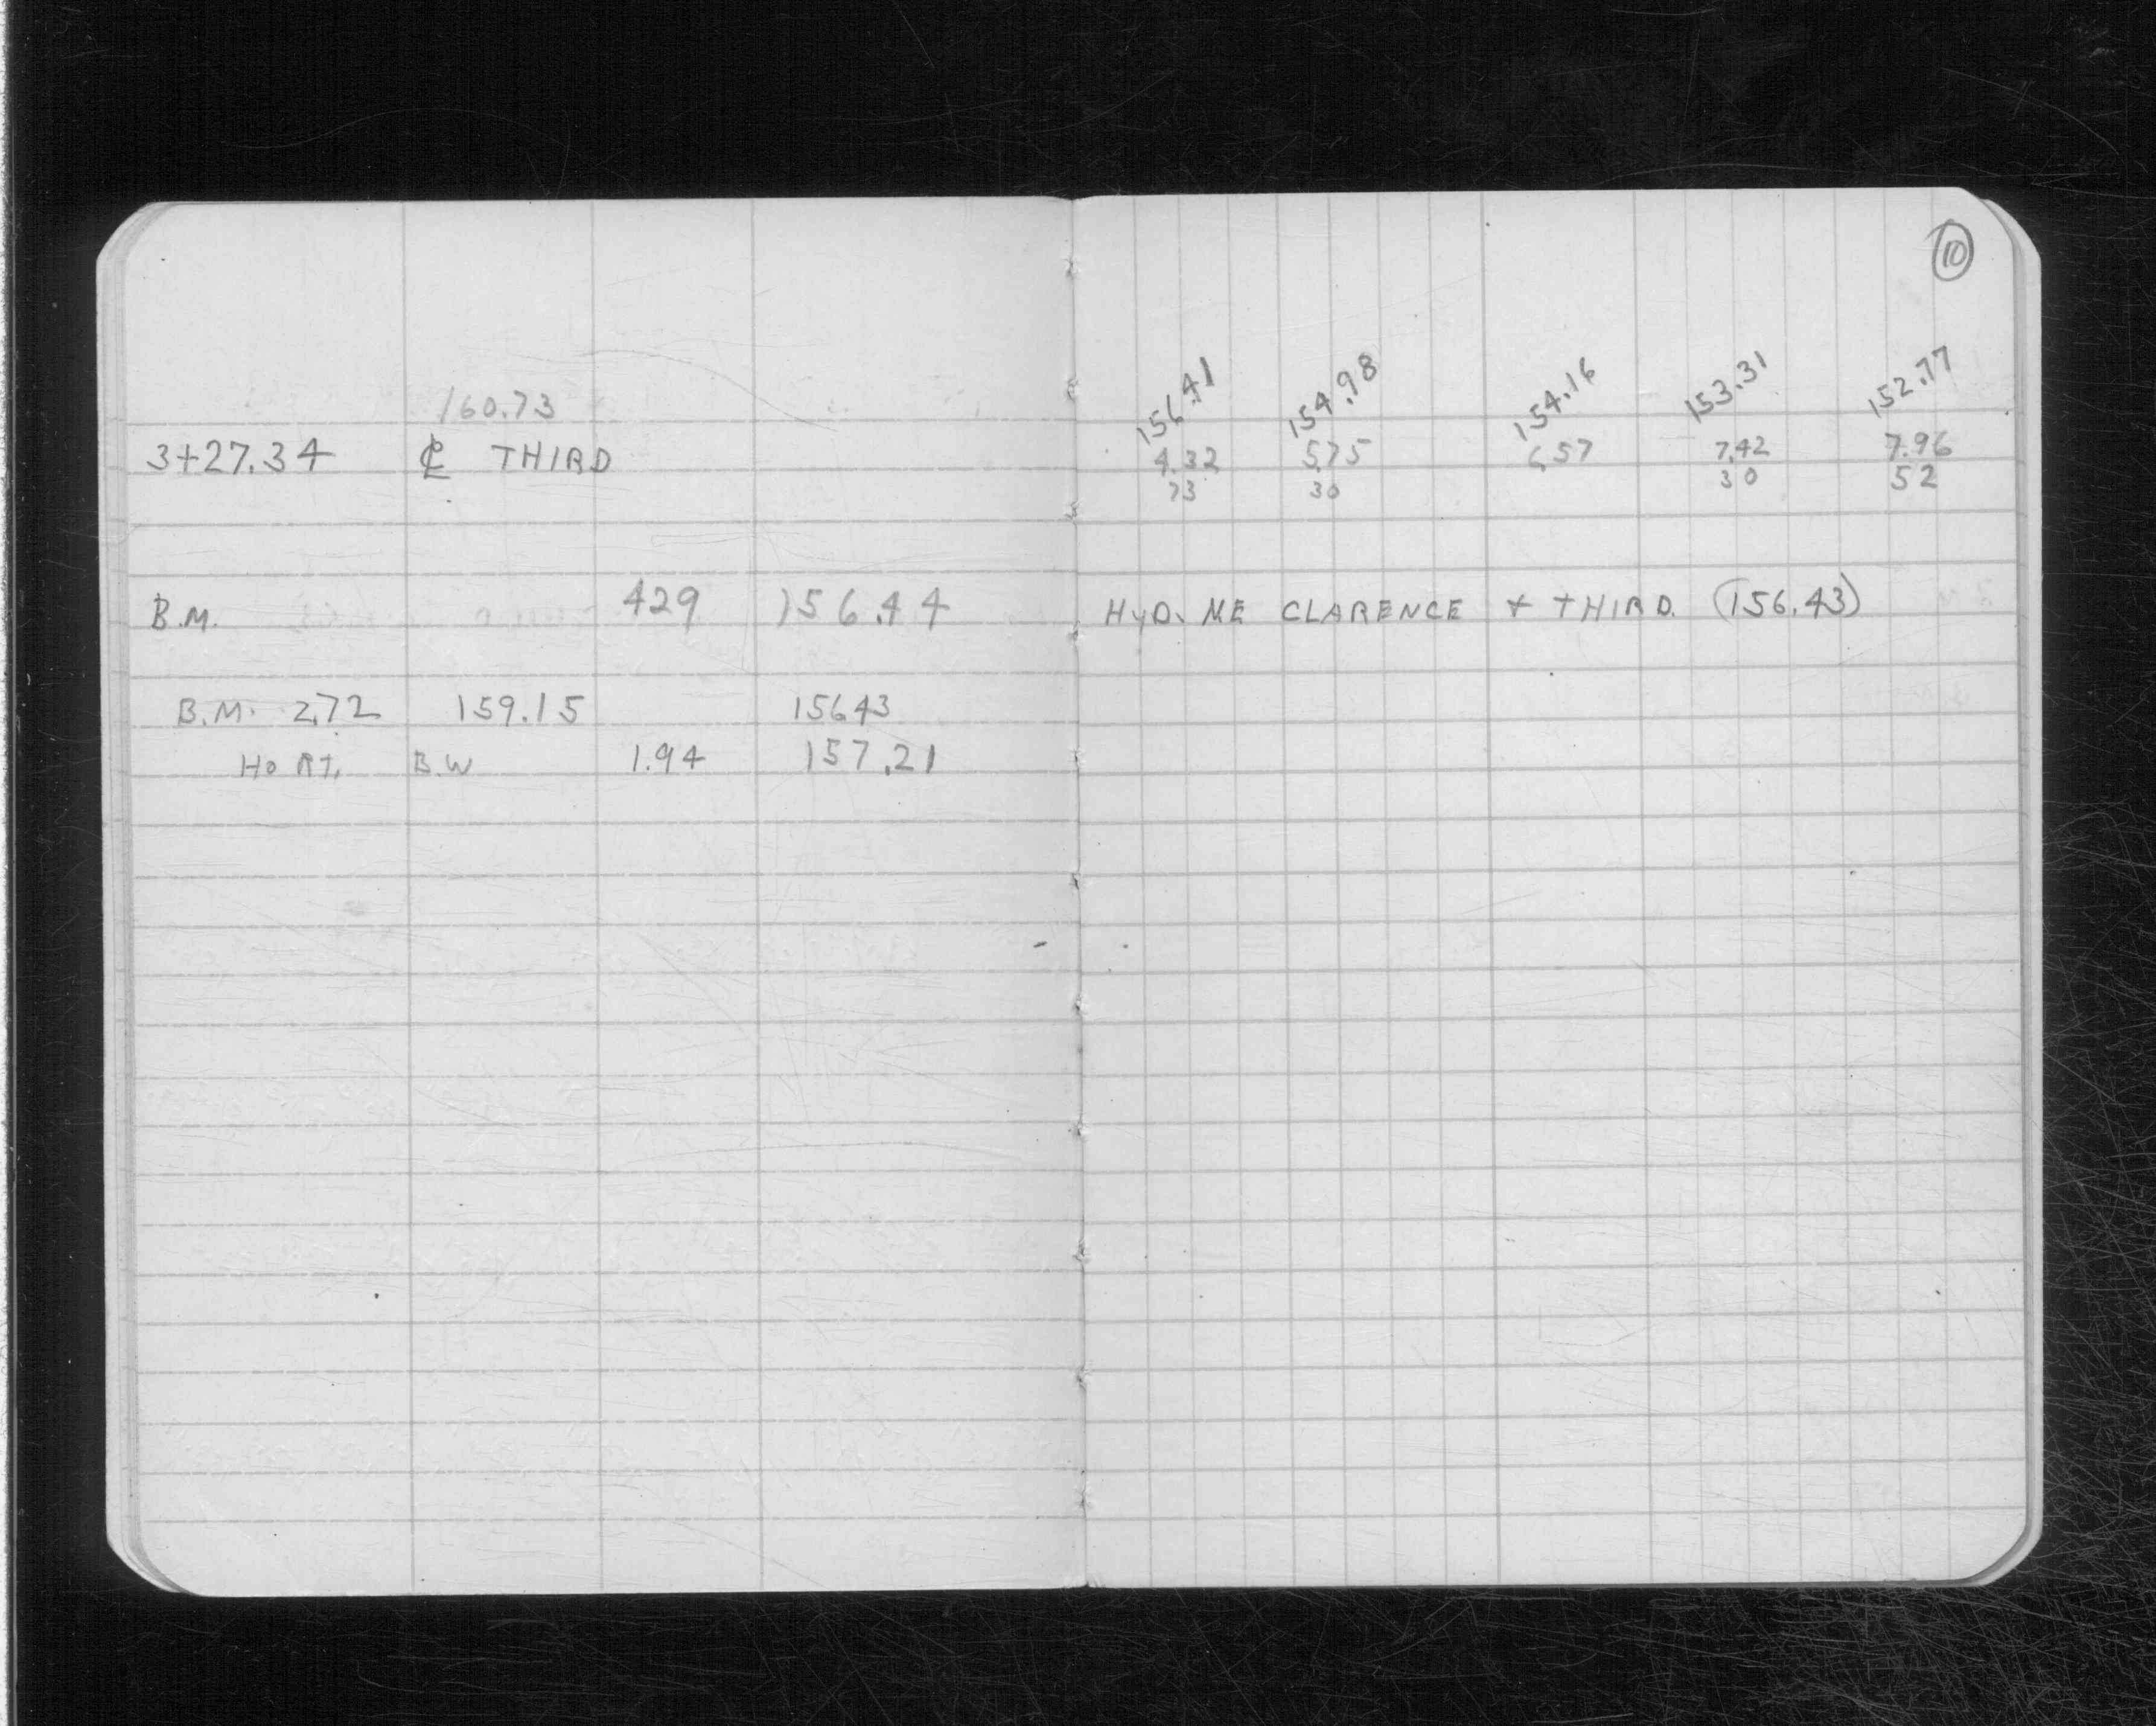 10
160.73
3+27.34 ℄ THIRD
156.41 154.98 154.16 153.31 152.77
4.32 5.75 6.57 7.42 7.96
73 30 30 52
B.M. 429 156.44 HYD. NE CLARENCE + THIRD. (156.43)
B.M. 2.72 159.15 156.43
B.W 1.94 157.21